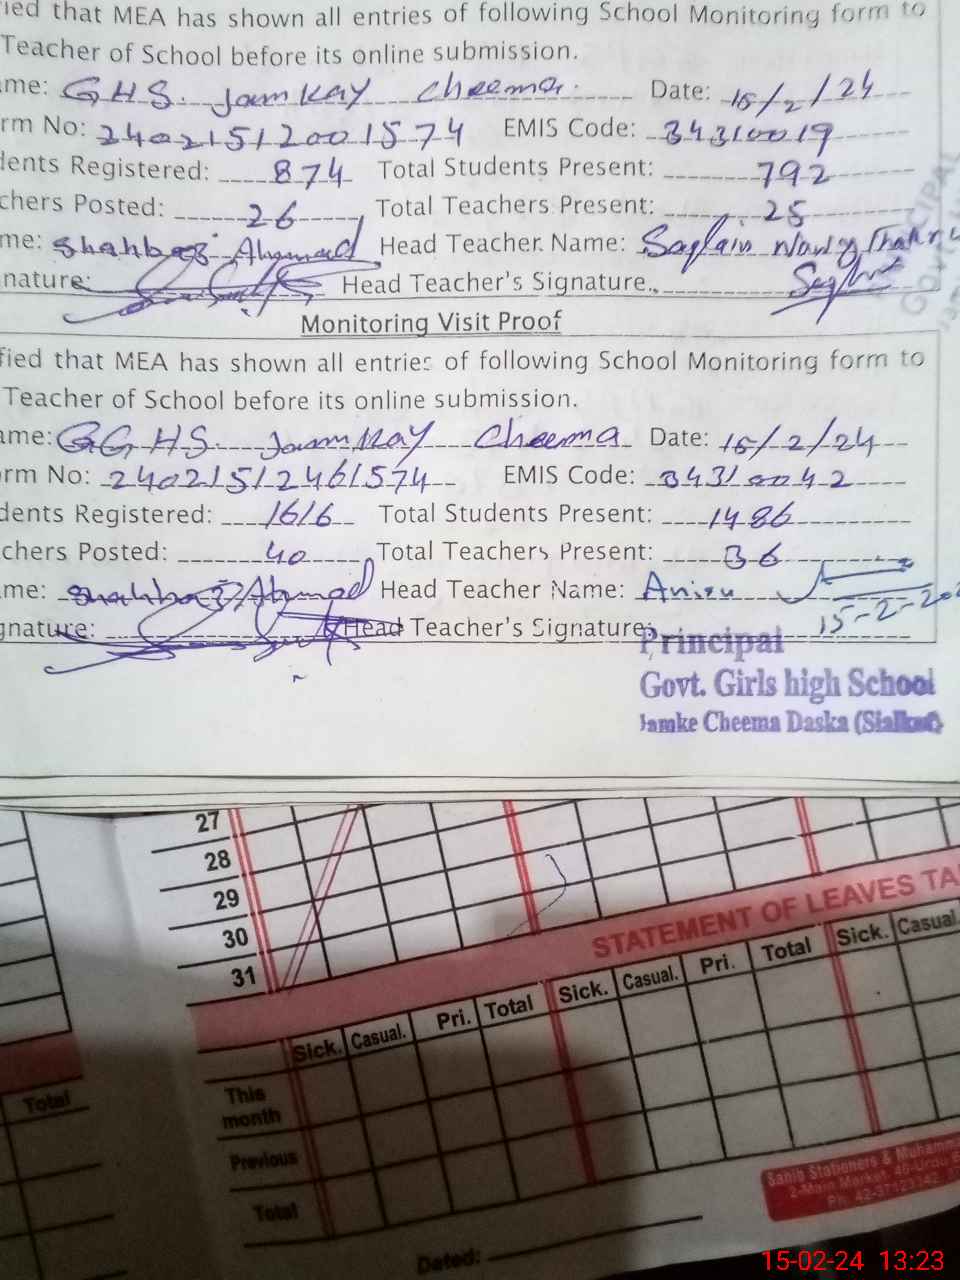 ied that MEA has shown all entries of following School Monitoring form to
Teacher of School before its online submission.
me: GHS. Jamkay Cheema. Date: 15/2/24
rm No: 24021512001574 EMIS Code: 34310019
dents Registered: 874 Total Students Present: 792
chers Posted: 26 Total Teachers Present: 25
me: Shahbaz Ahmad Head Teacher Name: Saqlain
nature: Head Teacher's Signature.
Monitoring Visit Proof
fied that MEA has shown all entries of following School Monitoring form to
Teacher of School before its online submission.
ame: GGHS. Jamkay Cheema Date: 15/2/24
rm No: 24021512461574 EMIS Code: 34310042
dents Registered: 1616 Total Students Present: 1486
chers Posted: 40 Total Teachers Present: 36
me: Shahbaz Ahmad Head Teacher Name:
gnature: Head Teacher's Signature: 15-2-202
Principal
Govt. Girls high School
Jamke Cheema Daska (Sialkot)
27
28
29
30
31
STATEMENT OF LEAVES TA
Sick. Casual. Pri. Total Sick. Casual. Pri. Total Sick. Casual.
This month
Previous
Total
Total
Sahib Stationers & Muhamm
2-Main Market, 40-Urdu B
Dated:
15-02-24 13:23